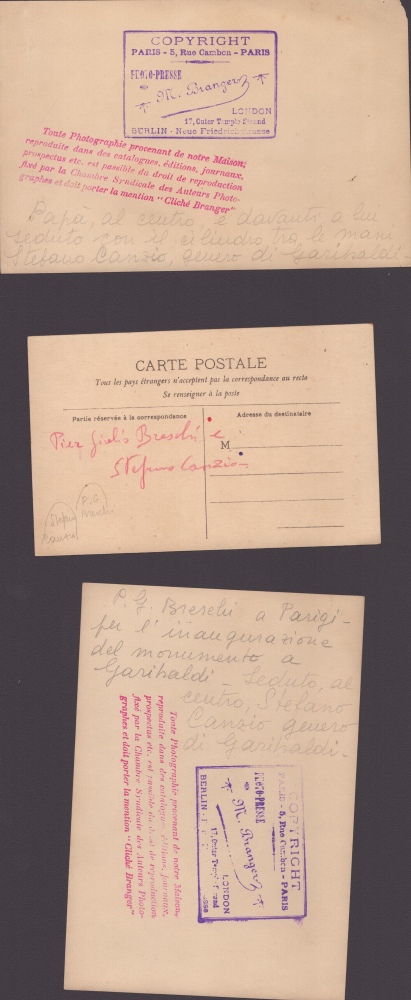 COPYRIGHT
PARIS - 5, Rue Cambon - PARIS
PHOTO-PRESSE
M. Branger
LONDON
17, Outer Temple Strand
BERLIN - Neue Friedrichstrasse
Toute Photographie provenant de notre Maison,
reproduite dans des catalogues, éditions, journaux,
prospectus etc. est passible du droit de reproduction
fixé par la Chambre Syndicale des Auteurs Photo-
graphes et doit porter la mention "Cliché Branger"
Papà, al centro, e davanti a lui
seduto con il cilindro tra le mani
Stefano Canzio, genero di Garibaldi.
CARTE POSTALE
Tous les pays étrangers n'acceptent pas la correspondance au recto
Se renseigner à la poste
Partie réservée à la correspondance
Adresse du destinataire
Pier Giulio Breschi e
Stefano Canzio
M
P. G.
Breschi
Stefano
Canzio
P. G. Breschi a Parigi -
per l'inaugurazione
del monumento a
Garibaldi - Seduto, al
centro, Stefano
Canzio genero
di Garibaldi -
Toute Photographie provenant de notre Maison,
reproduite dans des catalogues, éditions, journaux,
prospectus etc. est passible du droit de reproduction
fixé par la Chambre Syndicale des Auteurs Photo-
graphes et doit porter la mention "Cliché Branger"
COPYRIGHT
PARIS - 5, Rue Cambon - PARIS
PHOTO-PRESSE
M. Branger
LONDON
17, Outer Temple Strand
BERLIN